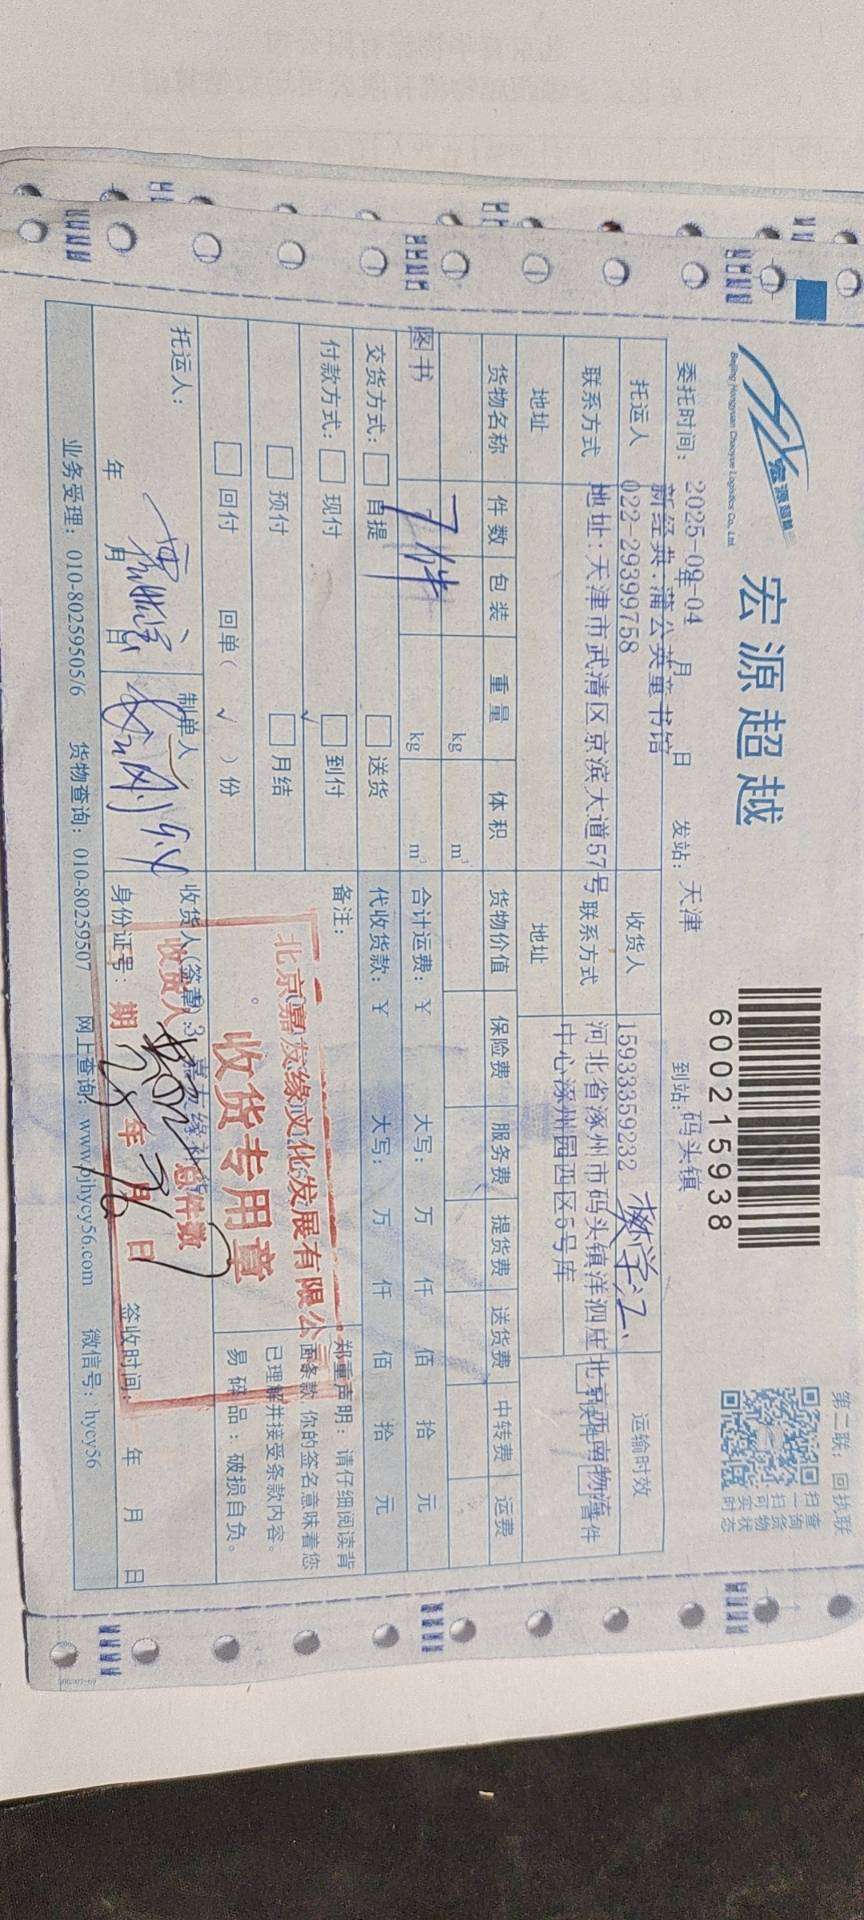 第二联：回执联
宏源超越
宏源超越
Beijing Hongyuan Chaoyue Logistics Co., Ltd.
600215938
扫查
一询
扫货
可物
知实状
时态
委托时间：2025-09-04 年 月 日 发站：天津 到站：码头镇
托运人 新经典.蒲公英童书馆 收货人 樊学江 运输时效
022-29399758 15933359232
联系方式 地址：天津市武清区京滨大道57号 联系方式 河北省涿州市码头镇洋泗庄北京西南物流
中心涿州园西区5号库
地址 地址
货物名称 件数 包装 重量 体积 货物价值 保险费 服务费 提货费 送货费 中转费 运费
kg m³
图书 7件 kg m³ 合计运费：￥ 大写： 万 仟 佰 拾 元
交货方式： 自提 送货 代收货款：￥ 大写： 万 仟 佰 拾 元
付款方式： 现付 √ 到付 备注：
预付 月结
回付 回单（ √ ）份
郑重声明：请仔细阅读背
面条款，你的签名意味着您
已理解并接受条款内容。
易碎品：破损自负。
北京嘉友缘文化发展有限公司
收货专用章
收货人 总件数 3
期 25 年 月 日
托运人： 制单人 收货人(签章)：
年 月 日 身份证号： 签收时间： 年 月 日
业务受理：010-80259505/6 货物查询：010-80259507 网上查询：www.bjhycy56.com 微信号：hycy56